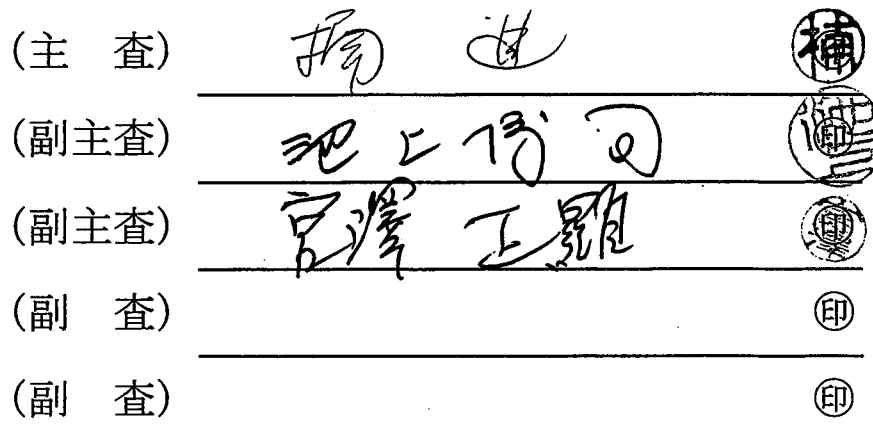 (主 査) 楠 進 楠
(副主査) 池上博司 印
(副主査) 宮澤 正顯 印
(副 査) 印
(副 査) 印